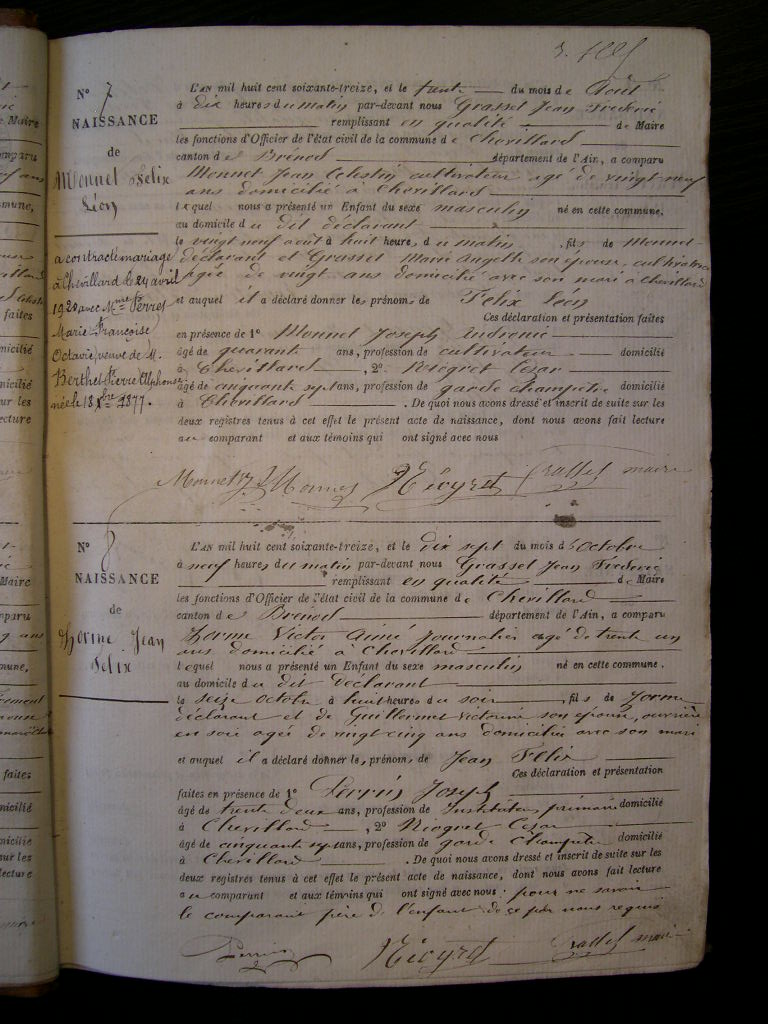 N° 7
NAISSANCE
de
Monnet Félix
Léon
a contracté mariage
à Chevillard le 24 avril
1920 avec Mme Perret
Marie Françoise
Octavie, veuve de M.
Berthet Pierre Alphonse
née le 18 Xbre 1877.
L'AN mil huit cent soixante-treize, et le trente du mois de Août
à dix heures du matin par-devant nous Grasset Jean Frédéric
remplissant en qualité de Maire
les fonctions d'Officier de l'état civil de la commune de Chevillard
canton de Brénod département de l'Ain, a comparu
Monnet Jean Célestin cultivateur agé de vingt-neuf
ans domicilié à Chevillard
lequel nous a présenté un Enfant du sexe masculin né en cette commune,
au domicile du dit déclarant
le vingt neuf août à huit heures du matin, fils de Monnet
déclarant et Grasset Marie Angèle son épouse, cultivatrice
agée de vingt ans domicilié avec son mari à Chevillard
et auquel il a déclaré donner les prénoms de Félix Léon
Ces déclaration et présentation faites
en présence de 1° Monnet Joseph Andronic
âgé de quarante ans, profession de cultivateur domicilié
à Chevillard, 2° César
âgé de cinquante sept ans, profession de garde champêtre domicilié
à Chevillard. De quoi nous avons dressé et inscrit de suite sur les
deux registres tenus à cet effet le présent acte de naissance, dont nous avons fait lecture
au comparant et aux témoins qui ont signé avec nous
Monnet Monnet Grasset maire
N° 8
NAISSANCE
de
Jean
Félix
L'AN mil huit cent soixante-treize, et le dix sept du mois d'octobre
à neuf heures du matin par-devant nous Grasset Jean Frédéric
remplissant en qualité de Maire
les fonctions d'Officier de l'état civil de la commune de Chevillard
canton de Brénod département de l'Ain, a comparu
Victor Aimé journalier agé de trente un
ans domicilié à Chevillard
lequel nous a présenté un Enfant du sexe masculin né en cette commune,
au domicile du dit déclarant
le seize octobre à huit heures du soir, fils de
déclarant et de Guillermet Victorine son épouse, ouvrière
en soie agée de vingt cinq ans domiciliée avec son mari
et auquel il a déclaré donner les prénoms de Jean Félix
Ces déclaration et présentation
faites en présence de 1° Perrin Joseph
âgé de trente deux ans, profession de instituteur primaire domicilié
à Chevillard, 2° César
âgé de cinquante sept ans, profession de garde champêtre domicilié
à Chevillard. De quoi nous avons dressé et inscrit de suite sur les
deux registres tenus à cet effet le présent acte de naissance, dont nous avons fait lecture
au comparant et aux témoins qui ont signé avec nous. pour ne savoir
le comparant père de l'enfant de ce par nous requis
Perrin Grasset maire